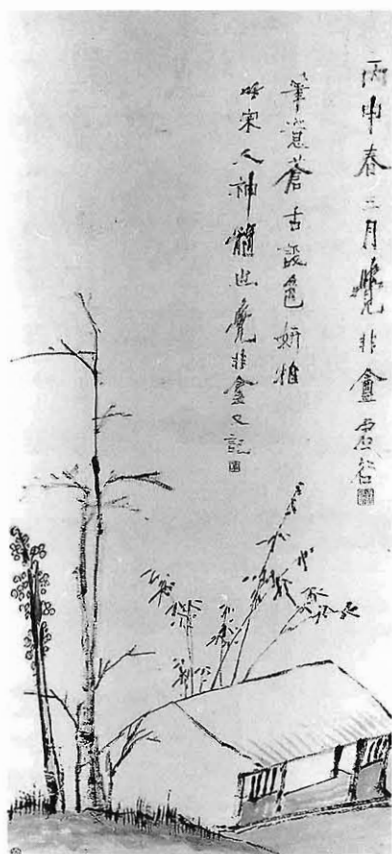 丙申春三月覺非盦虛谷
筆意蒼古設色妍
宋人神髓也覺非盦又記